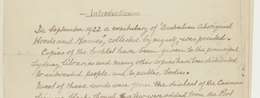 Introduction
In September 1922 a vocabulary of Australian Aboriginal
Words and Names, collected by myself, was printed.
Copies of the booklet have been given to the principal
Sydney libraries and many other copies have been distributed
to interested people and to public bodies.
Most of these words were from the